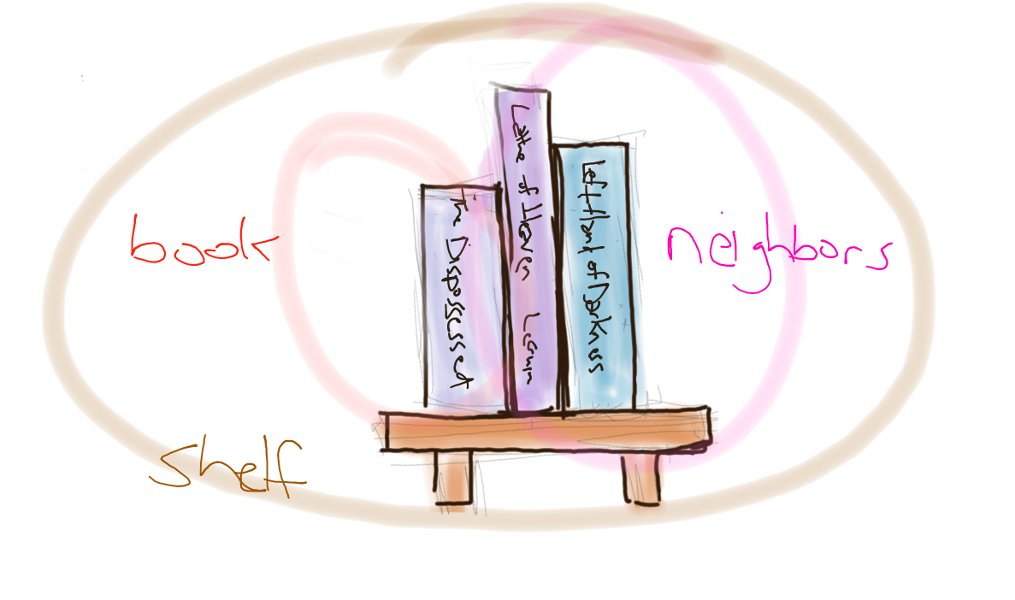 book
The Dispossessed
Lathe of Heaven Leguin
Left Hand of Darkness
neighbors
shelf